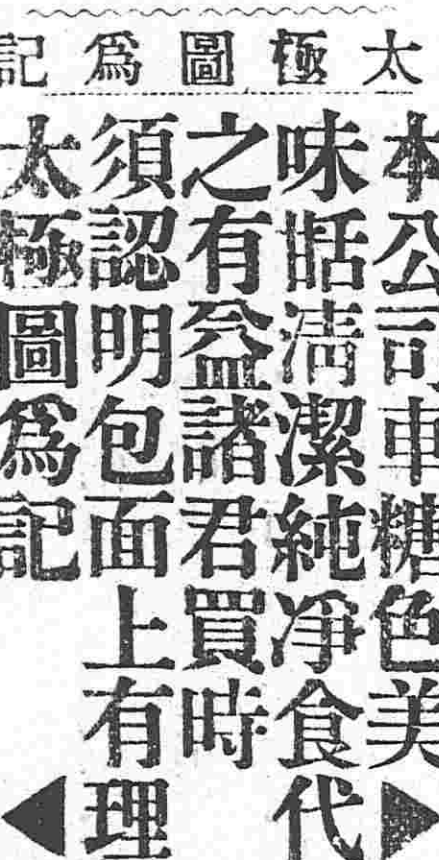 太極圖爲記
本公司車糖色美
味甛淸潔純淨食代
之有益諸君買時
須認明包面上有理
太極圖爲記